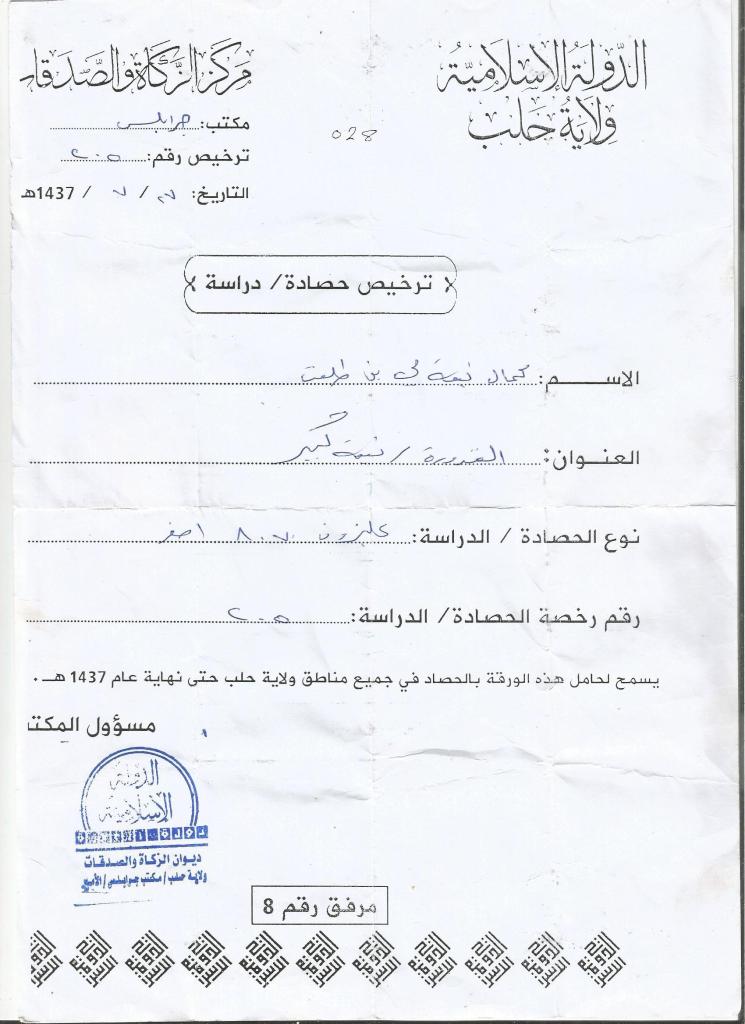 الدولة الإسلامية
ولاية حلب
مركز الزكاة والصدقات
مكتب: جرابلس
ترخيص رقم: ٢٠٥
التاريخ: ٢٧ / ٧ / 1437هـ
028
ترخيص حصادة/ دراسة
الاســـــم: كمال نعمة لي بن طلعت
العنــوان: القدورة / نعمة كبير
نوع الحصادة / الدراسة: ٨٠٧٠ اصفر
رقم رخصة الحصادة/ الدراسة: ٢٠٥
يسمح لحامل هذه الورقة بالحصاد في جميع مناطق ولاية حلب حتى نهاية عام 1437 هــ .
مسؤول المكتب
الدولة
الإسلامية
ديوان الزكاة والصدقات
ولاية حلب / مكتب جرابلس /
مرفق رقم 8